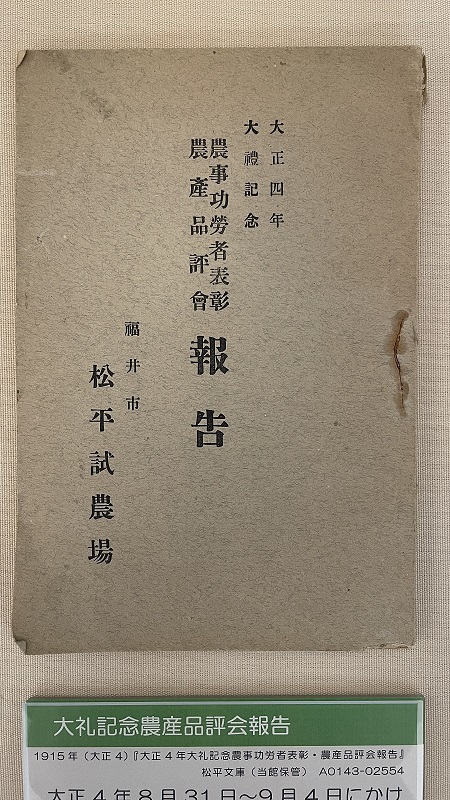 大正四年
大禮記念
農事功勞者表彰
農產品評會
報告
福井市
松平試農場
大礼記念農産品評会報告
1915年（大正4）『大正4年大礼記念農事功労者表彰・農産品評会報告』
松平文庫（当館保管） A0143-02554
大正4年8月31日～9月4日にかけ